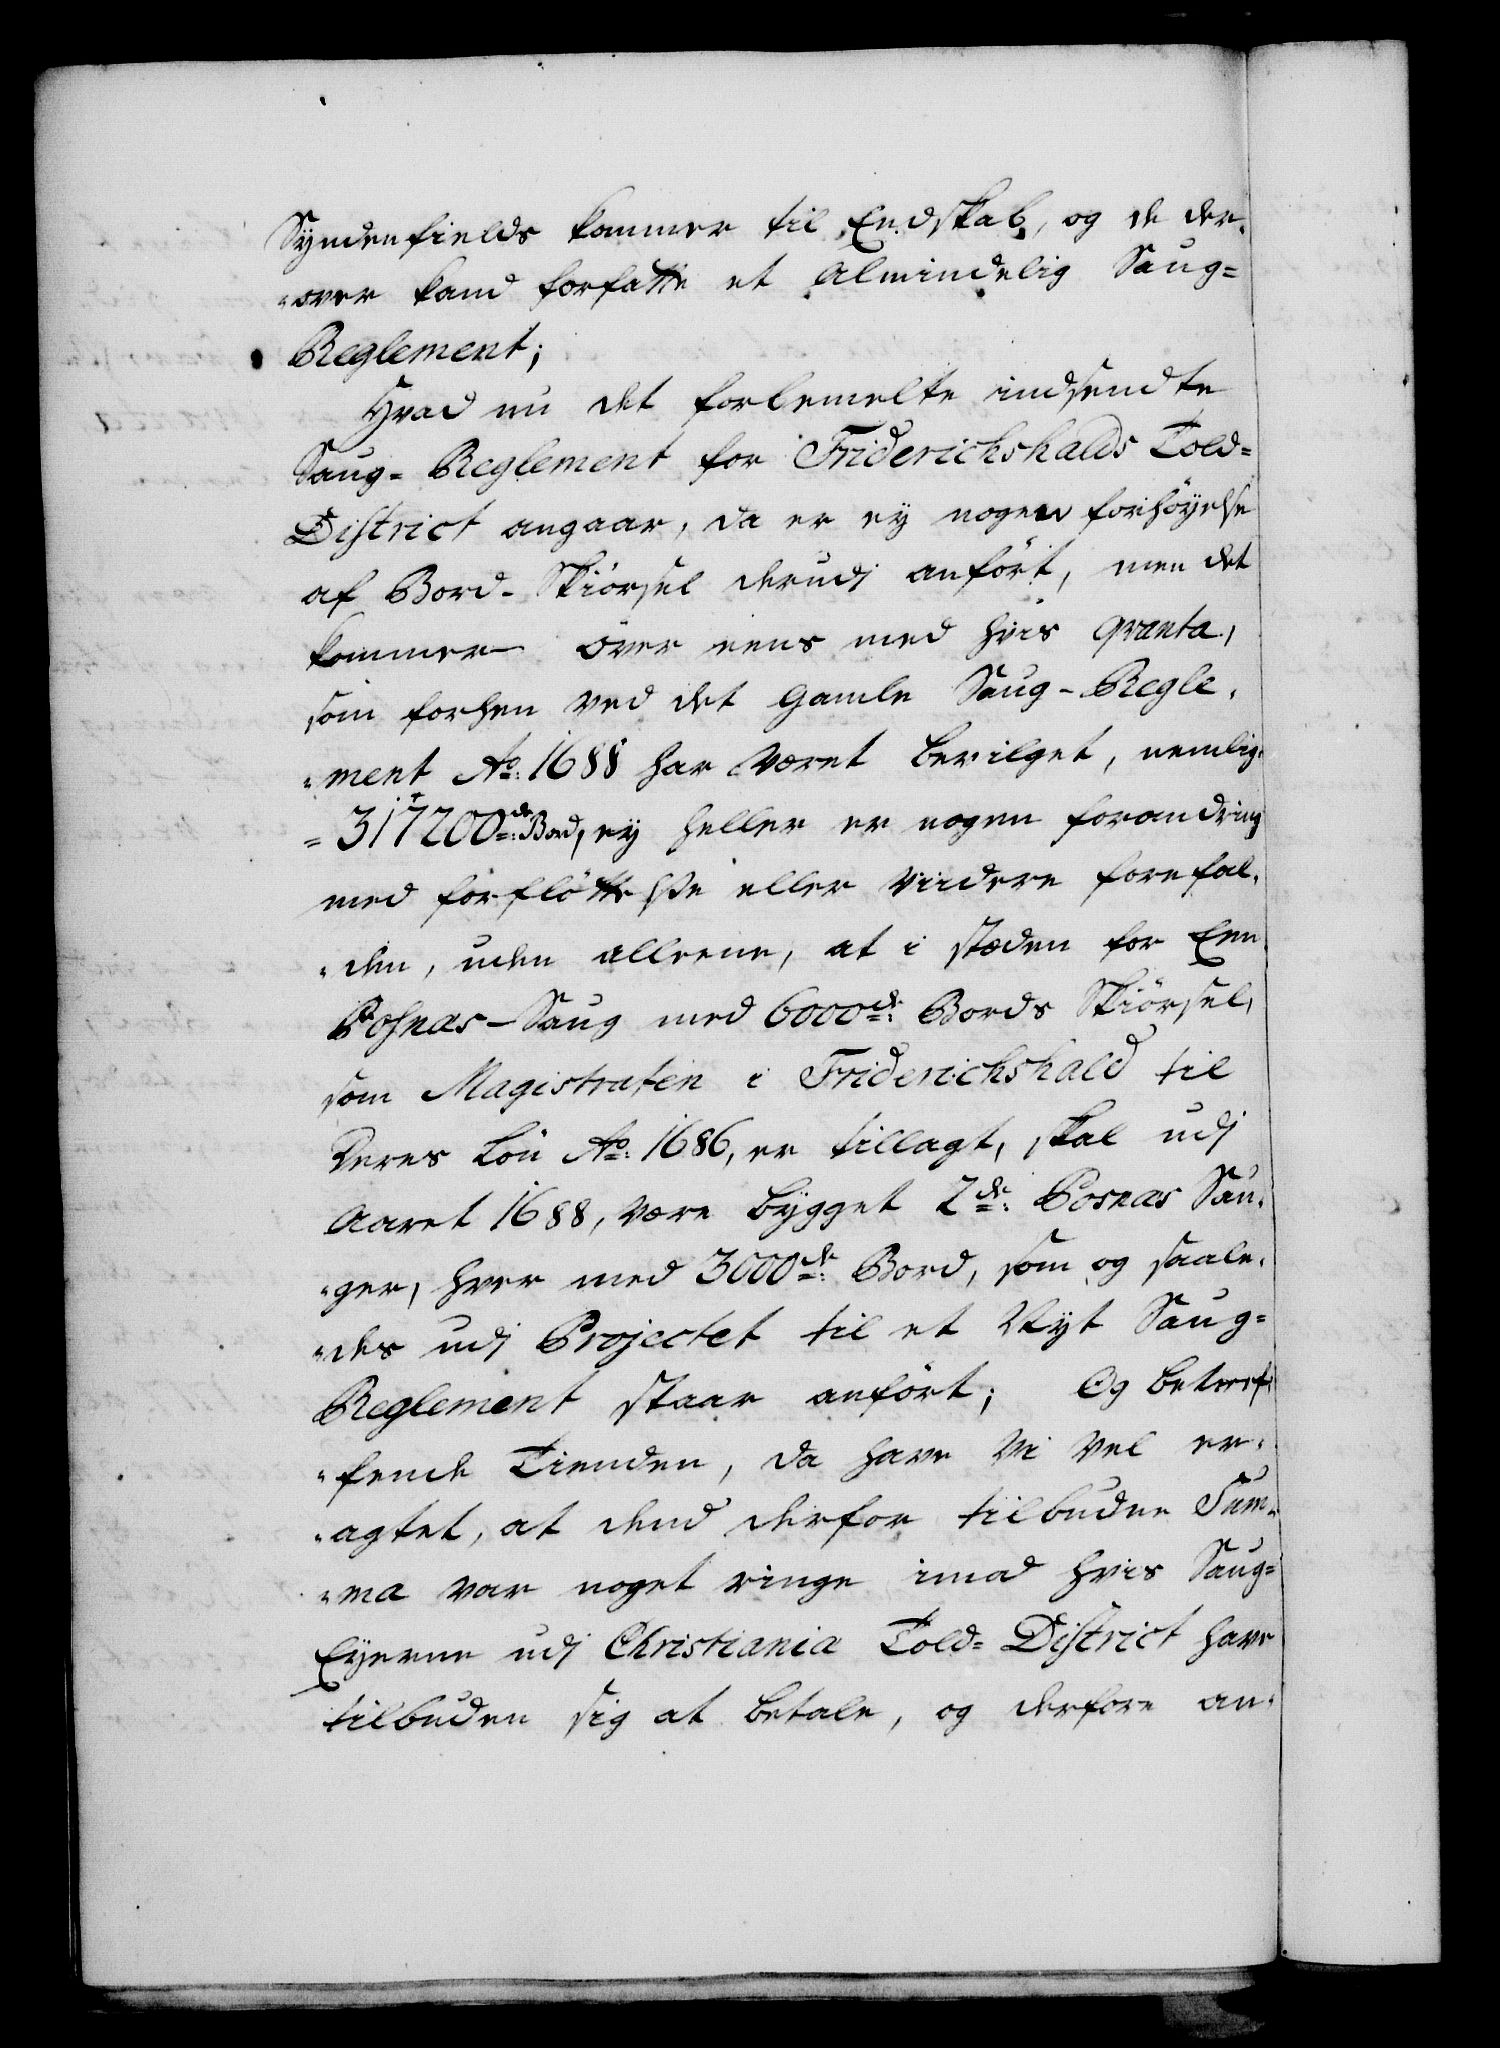 Syndenfields kommer til Endskab, og de der-
"over kand forfatte et Almindelig Saug=
Reglement;
Hvad nu det forbemelte indsendte
Saug- Reglement for Friderichshalds Told=
District angaar, da er ey nogen forhöyelse
af Bord- Skiörsel derudj anfört, men det
kommer over eens med hvis qvanta,
som forhen ved det gamle Saug-Regle-
"ment Ao: 1688 har været bevilget, nemlig-
= 317200de: Bord, ey heller er nogen forandring
med forflöttelse eller viidere forefal-
"den, uden alleene, at i stæden for Een
Posnas-Saug med 6000de: Bords Skiörsel,
som Magistraten i Friderichshald til
Deres Lön Ao: 1686, er tillagt, skal udj
Aaret 1688, være bygget 2de: Posnas Sau-
"ger, hver med 3000de: Bord, som og saale-
"des udj Projectet til et Nyt Saug=
Reglement staar anfört; Og betref-
"fende Tienden, da have Vi vel er-
"agtet, at dend derfor tilbudne Sum-
"ma var noget ringe imod hvis Saug=
Eyerne udj Christiania Told= District have
tilbuden sig at betale, og derfore an-